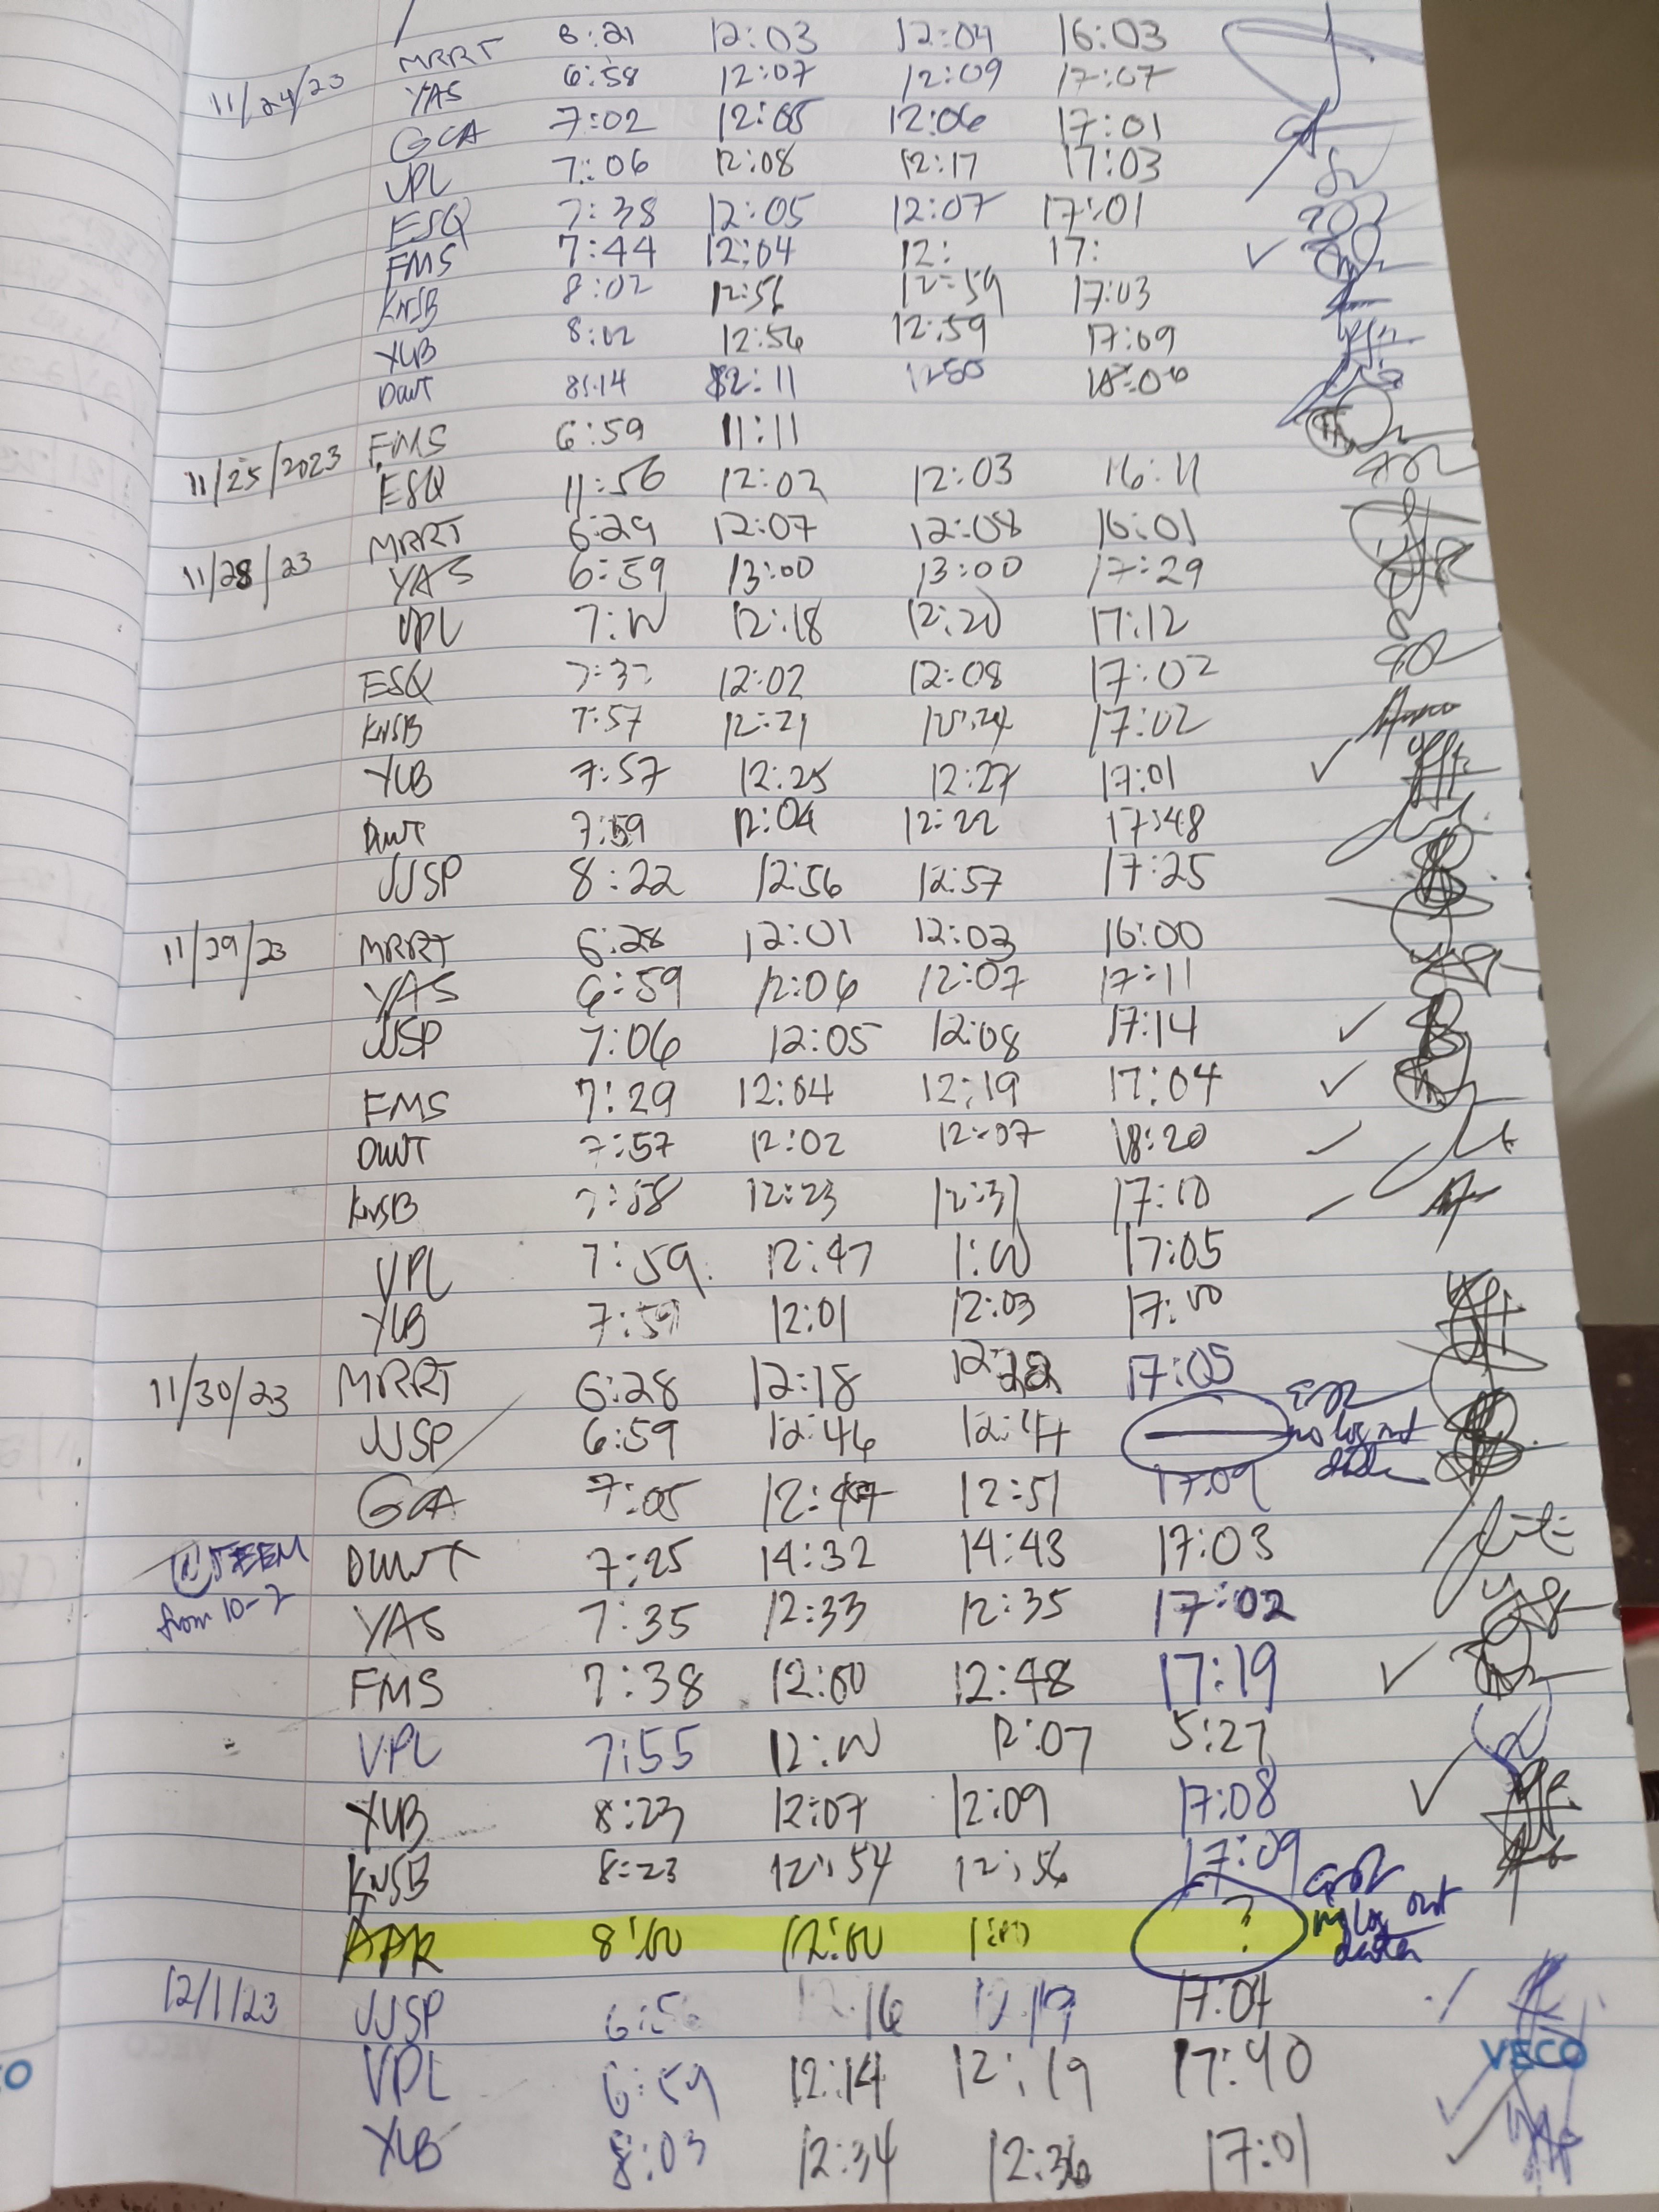 11/24/23 MRRT 6:21 12:03 12:04 16:03
YAS 6:58 12:07 12:09 17:07
GCA 7:02 12:05 12:06 17:01
VPL 7:06 12:08 12:17 17:03
ESQ 7:38 12:05 12:07 17:01
FMS 7:44 12:04 12: 17: ✓
KNSB 8:02 12:56 12:59 17:03
YLB 8:02 12:56 12:59 17:09
DWT 8:14 12:11 1255 18:06
11/25/2023 FMS 6:59 11:11
ESQ 11:56 12:02 12:03 16:11
11/28/23 MRRT 6:29 12:07 12:08 16:01
YAS 6:59 13:00 13:00 17:29
VPL 7:00 12:18 12:20 17:12
ESQ 12:02 12:08 17:02
KNSB 7:57 12:21 12:24 17:02
YLB 7:57 12:25 12:27 17:01 ✓
DWT 7:59 12:04 12:22 17:48
JJSP 8:22 12:56 12:57 17:25
11/29/23 MRRT 6:28 12:01 12:03 16:00
YAS 6:59 12:06 12:07 17:11
JJSP 7:06 12:05 12:08 17:14 ✓
FMS 7:29 12:04 12:19 17:04 ✓
DWT 7:57 12:02 12:07 18:20
KNSB 7:58 12:23 12:31 17:10
VPL 7:59 12:47 1:00 17:05
YLB 7:59 12:01 12:03 17:00
11/30/23 MRRT 6:28 12:18 17:05
JJSP 6:59 12:46 12:47 — no log out data
GCA 7:05 12:47 12:51 17:09
@TEEM DWT 7:25 14:32 14:43 17:03
from 10-2 YAS 7:35 12:33 12:35 17:02
FMS 7:38 12:00 12:48 17:19 ✓
VPL 7:55 12:00 12:07 5:27
YLB 8:23 12:07 12:09 17:08 ✓
KNSB 8:23 12:54 12:56 17:09
APR 8:00 12:00 1:00 ? no log out data
12/1/23 JJSP 12:19 17:04
VPL 6:59 12:14 12:19 17:40 ✓
YLB 8:03 12:34 12:36 17:01 ✓
VECO